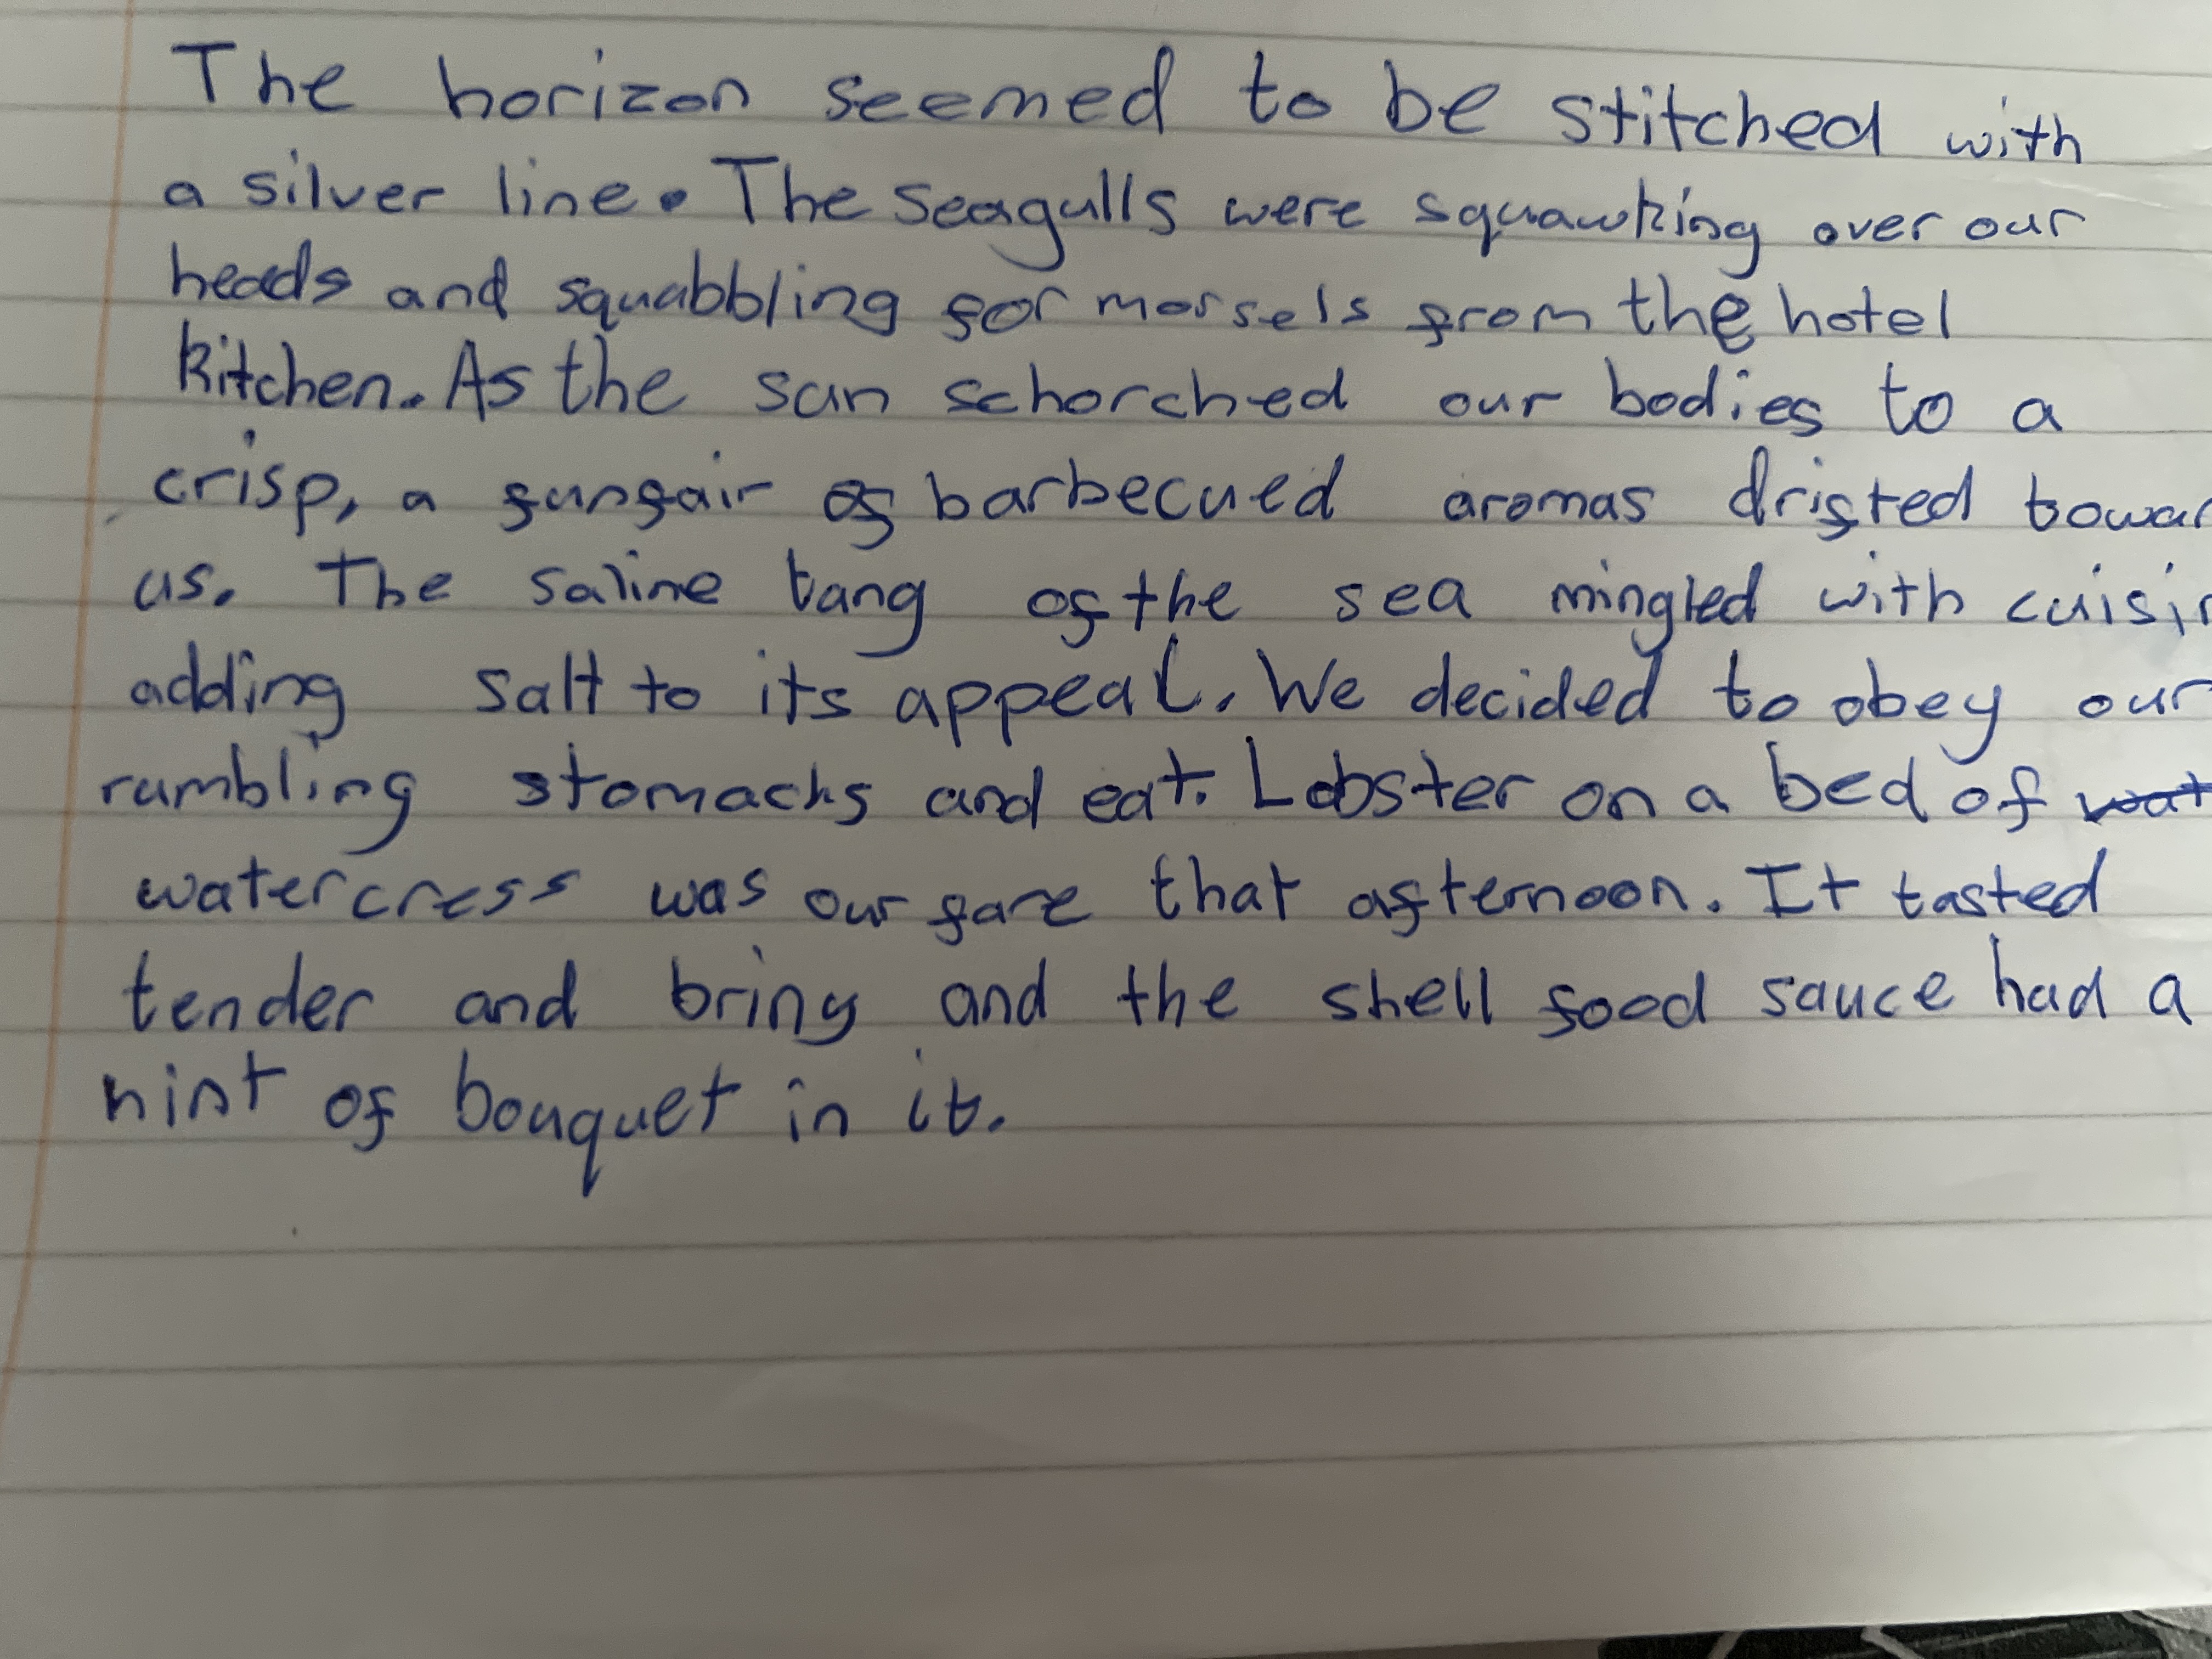 The horizon seemed to be stitched with
a silver line. The seagulls were squawking over our
heads and squabbling for morsels from the hotel
kitchen. As the sun schorched our bodies to a
crisp, a funfair of barbecued aromas drifted towar
us. The saline tang of the sea mingled with cuisin
adding salt to its appeal. We decided to obey our
rumbling stomachs and eat. Lobster on a bed of wat
watercress was our fare that afternoon. It tasted
tender and briny and the shell food sauce had a
hint of bouquet in it.